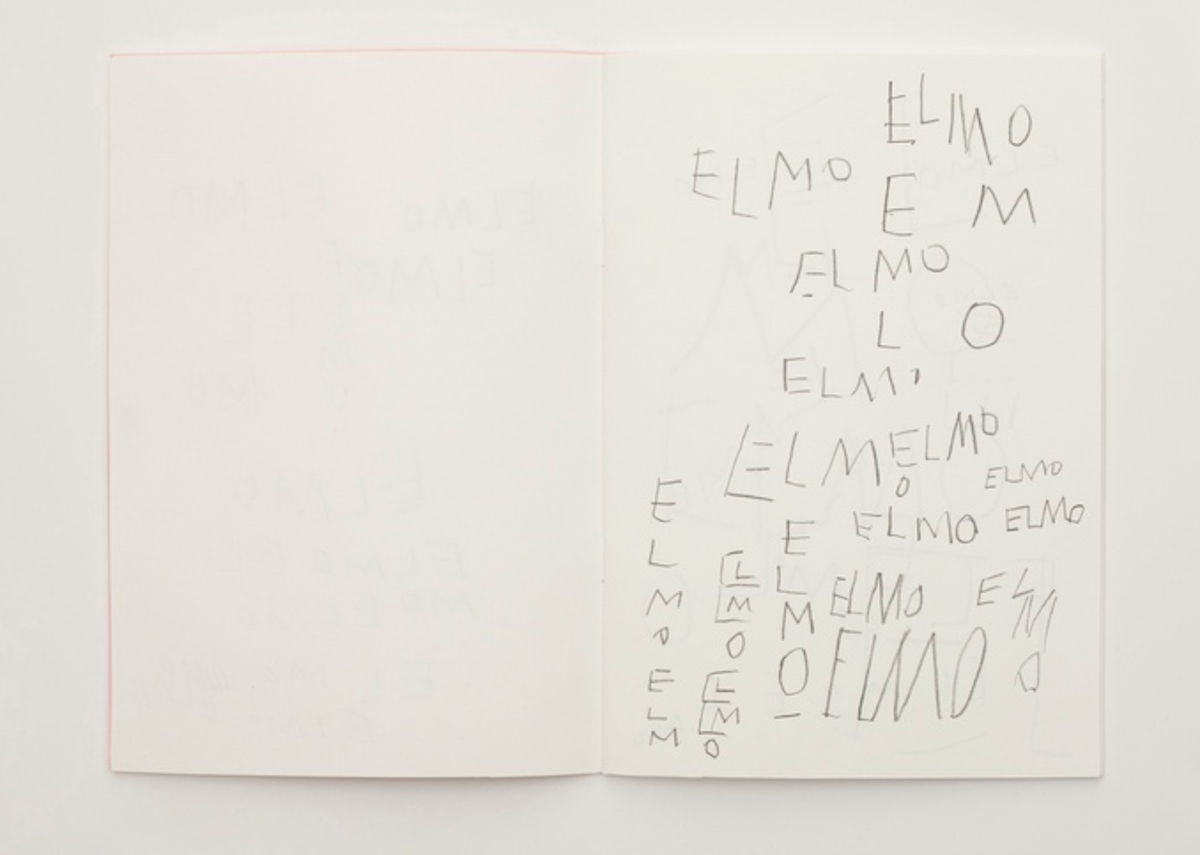 ELMO
ELMO
E M
ELMO
L O
ELMO
ELMO
ELMO
ELMO
ELMO
ELMO
E
L
M
O
E
L
M
EL
M
O
EL
M
O
E
L
M
O
ELMO
EL
M
O
ELMO